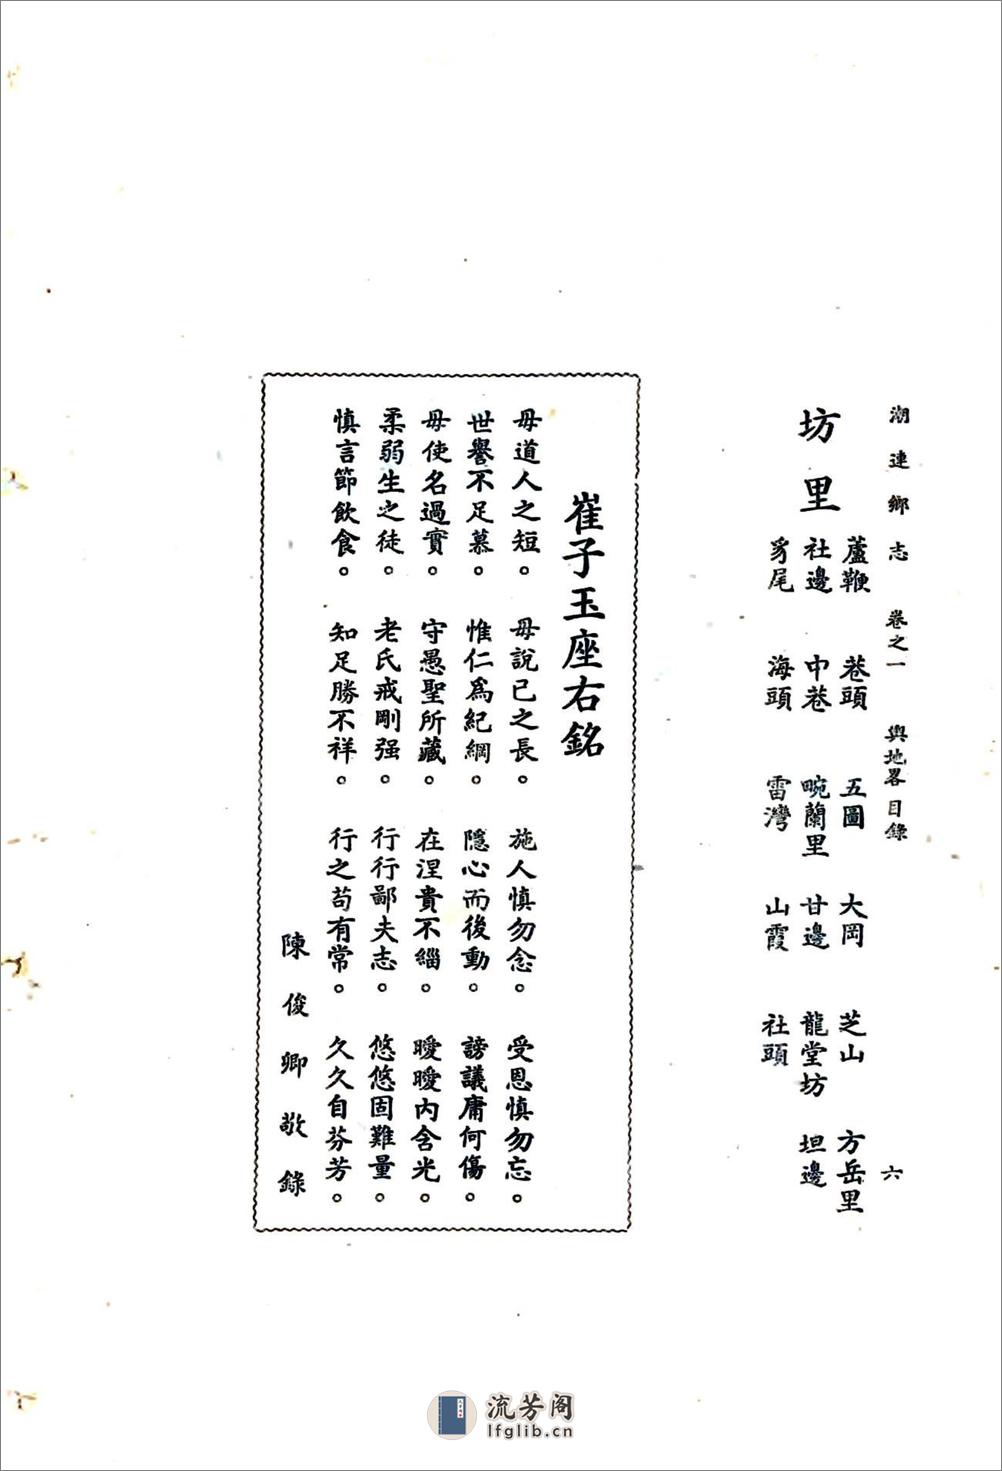 潮連鄉志　卷之一　輿地畧目錄　六
坊里
蘆鞭　巷頭　五圖　大岡　芝山　方岳里
社邊　中巷　畹蘭里　甘邊　龍堂坊　坦邊
豸尾　海頭　雷灣　山霞　社頭
崔子玉座右銘
毋道人之短。毋說已之長。施人慎勿念。受恩慎勿忘。
世譽不足慕。惟仁爲紀綱。隱心而後動。謗議庸何傷。
毋使名過實。守愚聖所藏。在涅貴不緇。曖曖內含光。
柔弱生之徒。老氏戒剛强。行行鄙夫志。悠悠固難量。
慎言節飲食。知足勝不祥。行之苟有常。久久自芬芳。
陳俊卿敬錄
流芳阁
lfglib.cn